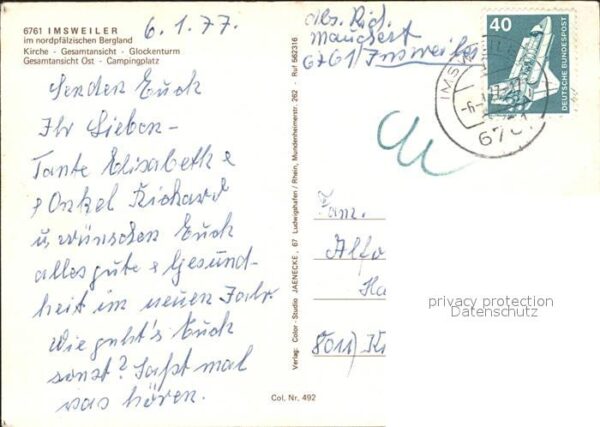 6761 IMSWEILER
im nordpfälzischen Bergland
Kirche · Gesamtansicht · Glockenturm
Gesamtansicht Ost · Campingplatz
6.1.77.
Senden Euch
Ihr Lieben –
Tante Elisabeth &
& Onkel Richard
u. wünschen Euch
alles gute & Gesund-
heit im neuen Jahr.
Wie geht's Euch
sonst? Laßt mal
was hören.
Verlag: Color-Studio JAENECKE, 67 Ludwigshafen / Rhein, Mundenheimerstr. 262 · Ruf 562316
Col. Nr. 492
abs. Rich.
6761 Imsweiler
40
DEUTSCHE BUNDESPOST
Fam.
Alfo
8011
privacy protection
Datenschutz